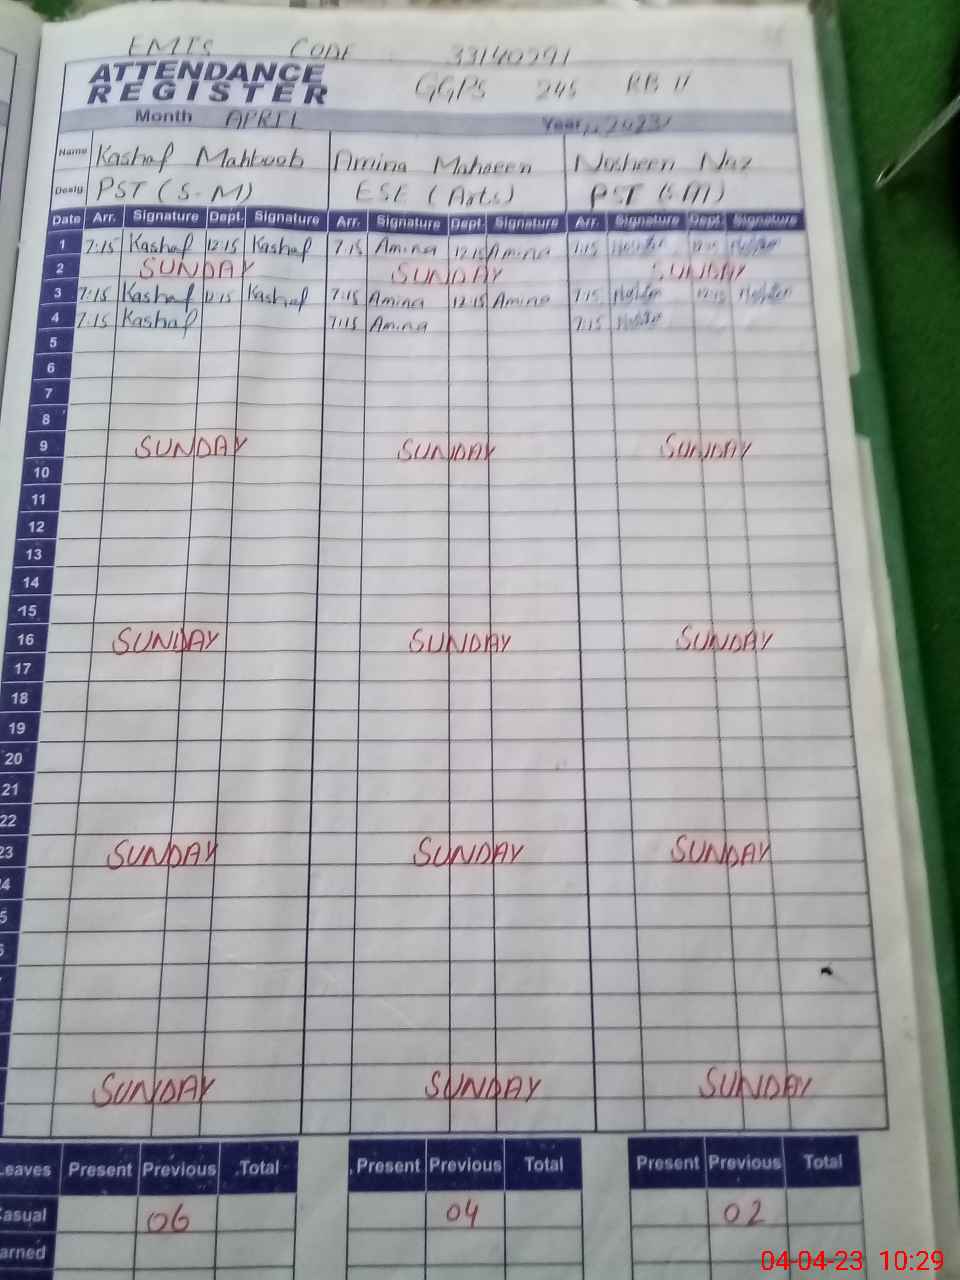 EMIS CODE 33140291
ATTENDANCE REGISTER GGPS 245 RB II
Month APRIL Year 2023
Name Kashaf Mahboob Amina Maheen Nosheen Naz
Desig. PST (S-M) ESE (Arts) PST (S.M)
Date Arr. Signature Dept. Signature Arr. Signature Dept. Signature Arr. Signature Dept. Signature
1 7:15 Kashaf 12:15 Kashaf 7:15 Amina 12:15 Amina 7:15 12:15
2 SUNDAY SUNDAY SUNDAY
3 7:15 Kashaf 12:15 Kashaf 7:15 Amina 12:15 Amina 7:15 12:15
4 7:15 Kashaf 7:15 Amina 7:15
5
6
7
8
9 SUNDAY SUNDAY SUNDAY
10
11
12
13
14
15
16 SUNDAY SUNDAY SUNDAY
17
18
19
20
21
22
23 SUNDAY SUNDAY SUNDAY
4
5
SUNDAY SUNDAY SUNDAY
Leaves Present Previous Total Present Previous Total Present Previous Total
Casual 06 04 02
arned
04-04-23 10:29